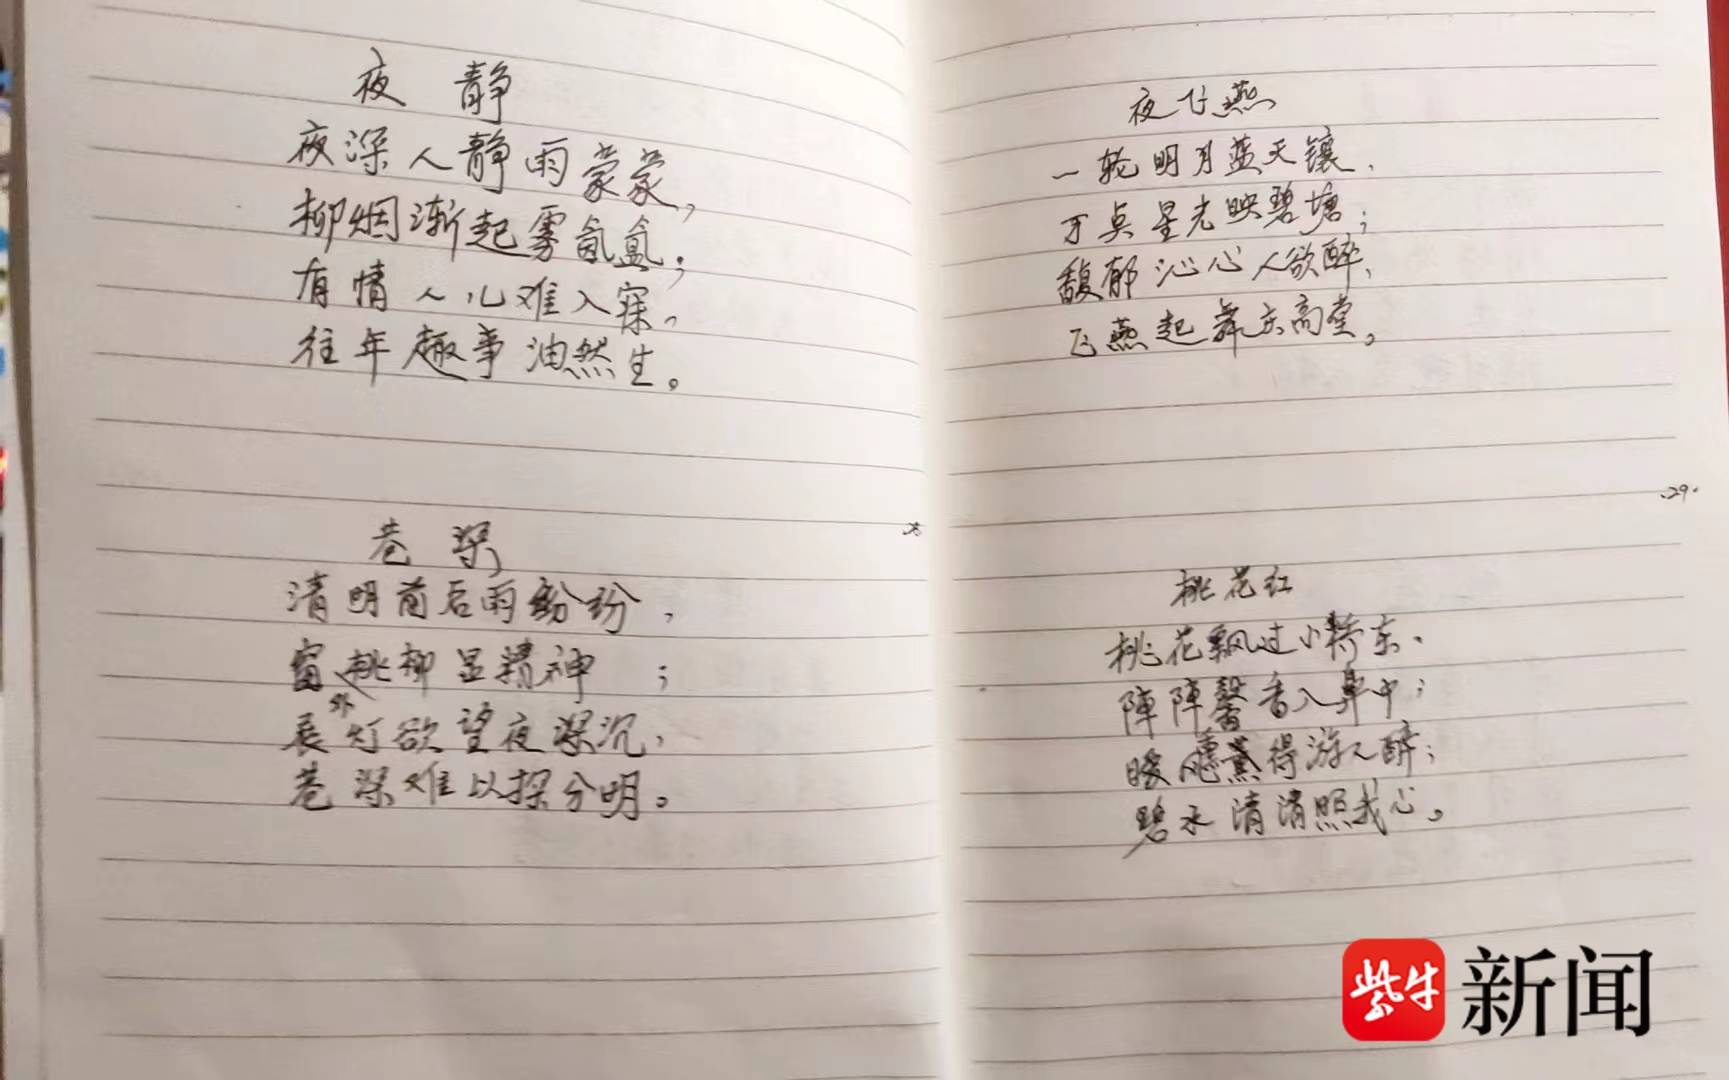 夜静
夜深人静雨蒙蒙,
柳烟渐起雾氤氲;
有情人儿难入寐。
往年趣事油然生。
巷深
清明前后雨纷纷,
窗外桃柳显精神;
展灯欲望夜深沉,
巷深难以探分明。
夜飞燕
一轮明月蓝天镶、
万点星光映碧塘;
馥郁沁心人欲醉、
飞燕起舞庆高堂。
29
桃花红
桃花飘过小桥东、
阵阵馨香入鼻中;
暖风熏得游人醉;
碧水清清照我心。
紫牛新闻